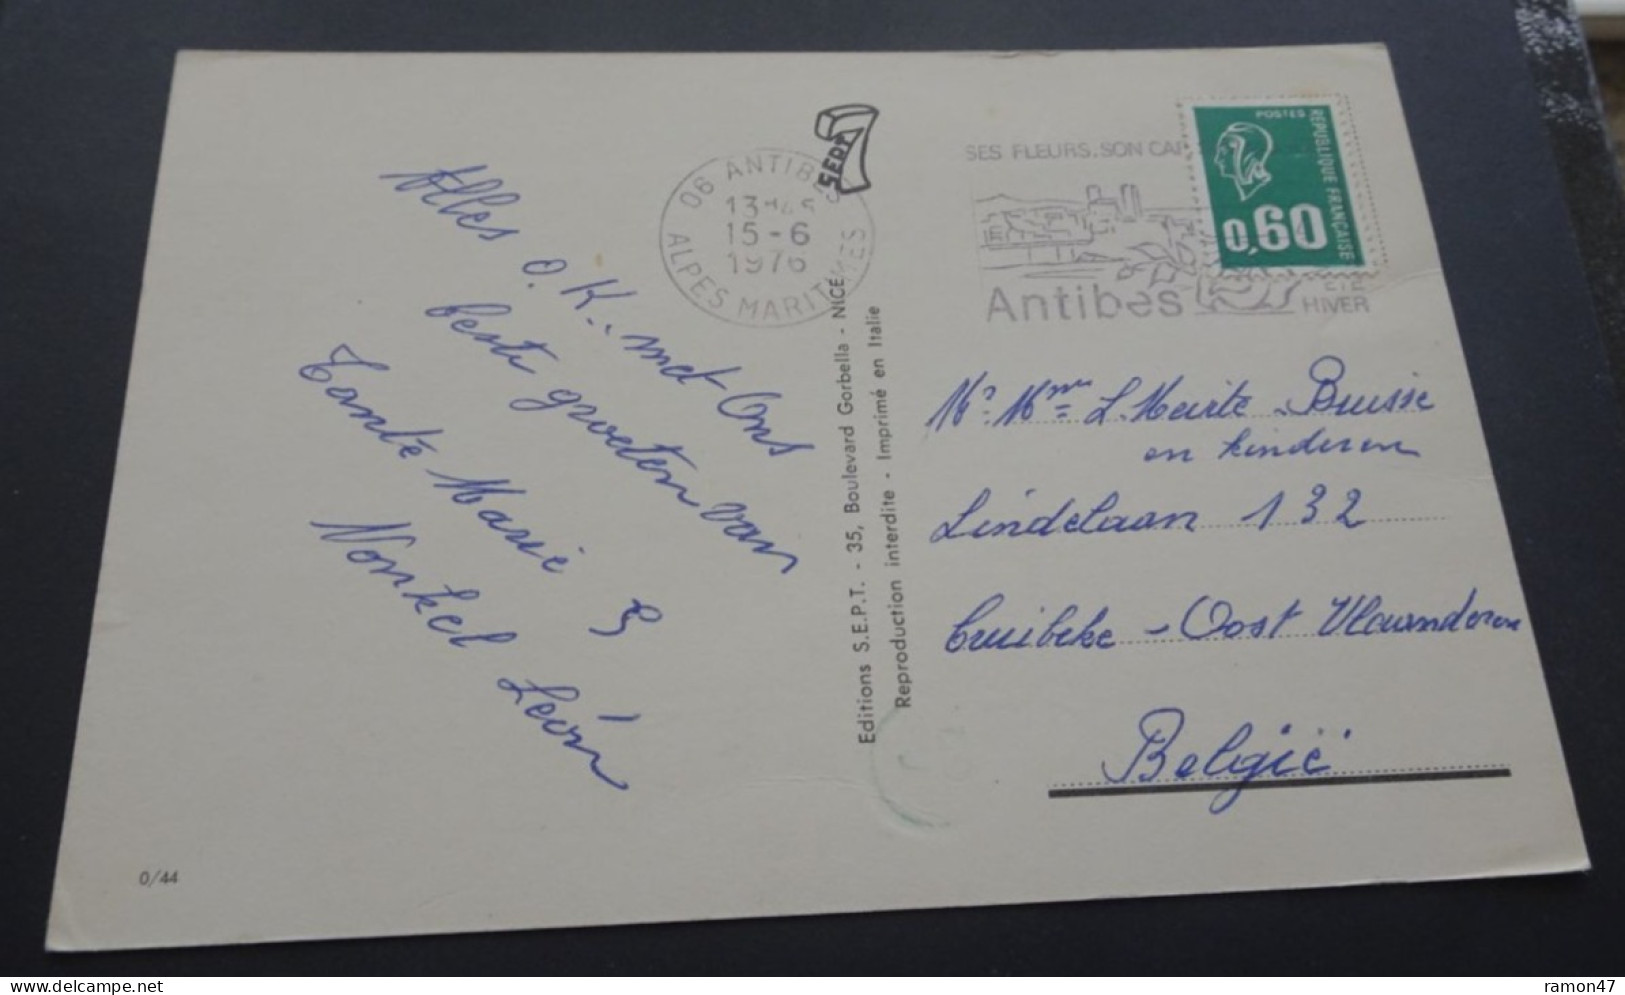 Alles
O.K.. met Ons
beste groeten van
Tante Marie &
Nonkel León
0/44
SEPT 7
06 ANTIBES
15-6
1976
ALPES MARITIMES
Editions S.E.P.T. - 35, Boulevard Gorbella - NICE
Reproduction interdite - Imprimé en Italie
SES FLEURS. SON
Antibes
HIVER
POSTES
REPUBLIQUE FRANÇAISE
0,60
Mr Mme L. Buisse
en kinderen
Lindelaan 132
Cruibeke - Oost Vlaanderen
België
delcampe.net
ramon47